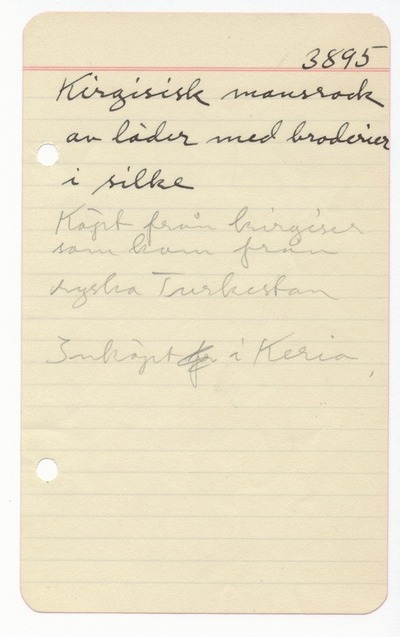 3895
Kirgisisk mansrock
av läder med broderier
i silke
Köpt från kirgiser
som kom från
ryska Turkestan
Inköpt i Keria,